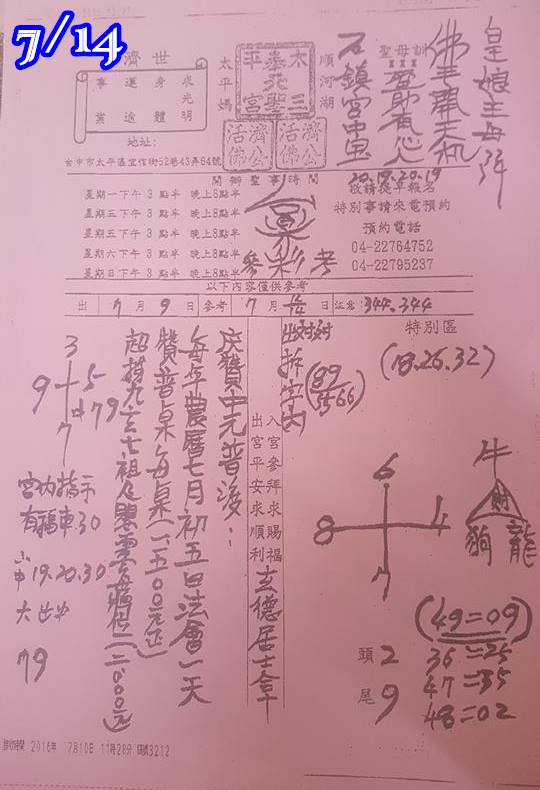 7/14
濟世
求光明
身體
運途
事業
地址:
台中市太平區宜信街52巷43弄64號
太平媽
太三聖宮
順河湖
濟公活佛
濟公活佛
聖母訓
皇娘主母
佛主開天机
石鎮宮中
20.19.20.19
開辦聖事時間
星期一下午 3 點半 晚上8點半
星期三下午 3 點半 晚上8點半
星期五下午 3 點半 晚上8點半
星期六下午 3 點半 晚上8點半
星期日下午 3 點半 晚上8點半
敬請提早報名
特別事請來電預約
預約電話
04-22764752
04-22795237
彩
參考
以下內容僅供參考
出 7 月 9 日 參考 7 月 日 注意: 344.344
特別區
(18.26.32)
6
8 4
7
牛
財
狗 龍
(49=09)
36=25
47=35
48=02
頭 2
尾 9
拆字
(89
566)
入宮參拜求賜福
出宮平安求順利
玄德居士拿
慶贊中元普渡:
每年農曆七月初五日法會一天
贊普桌每桌(一五00元正)
超拔九玄七祖
3
9 5
7
79
宮內指示
有福車30
中 19.20.30
大
79
2016年 7月10日 11時28分 3212